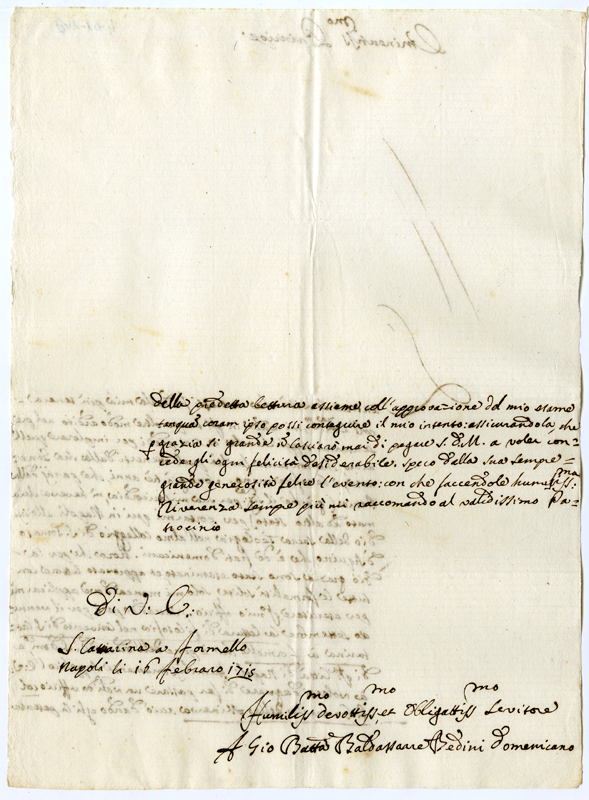 della predetta lettura assieme coll'approvazione del mio esame
tanquã coram ipso possi conseguire il mio intento: assicurandola, che
p grazia si grande nõ lasciarò mai di pregare S.D.M. a voler con=
cedergli ogni felicità desiderabile. Spero dalla sua sempre=
grande generosità felice l'evento: con che faccendole humiliss:ma
Riverenza sempre più mi raccomando al validissimo Pa=
trocinio
Di V: E:
S. Cattarina a Formello
Napoli li 16 Febraro 1715
Humiliss.mo devottiss.mo et Obligattiss.mo Servitore
F Gio Batta Baldassarre Bedini Domenicano